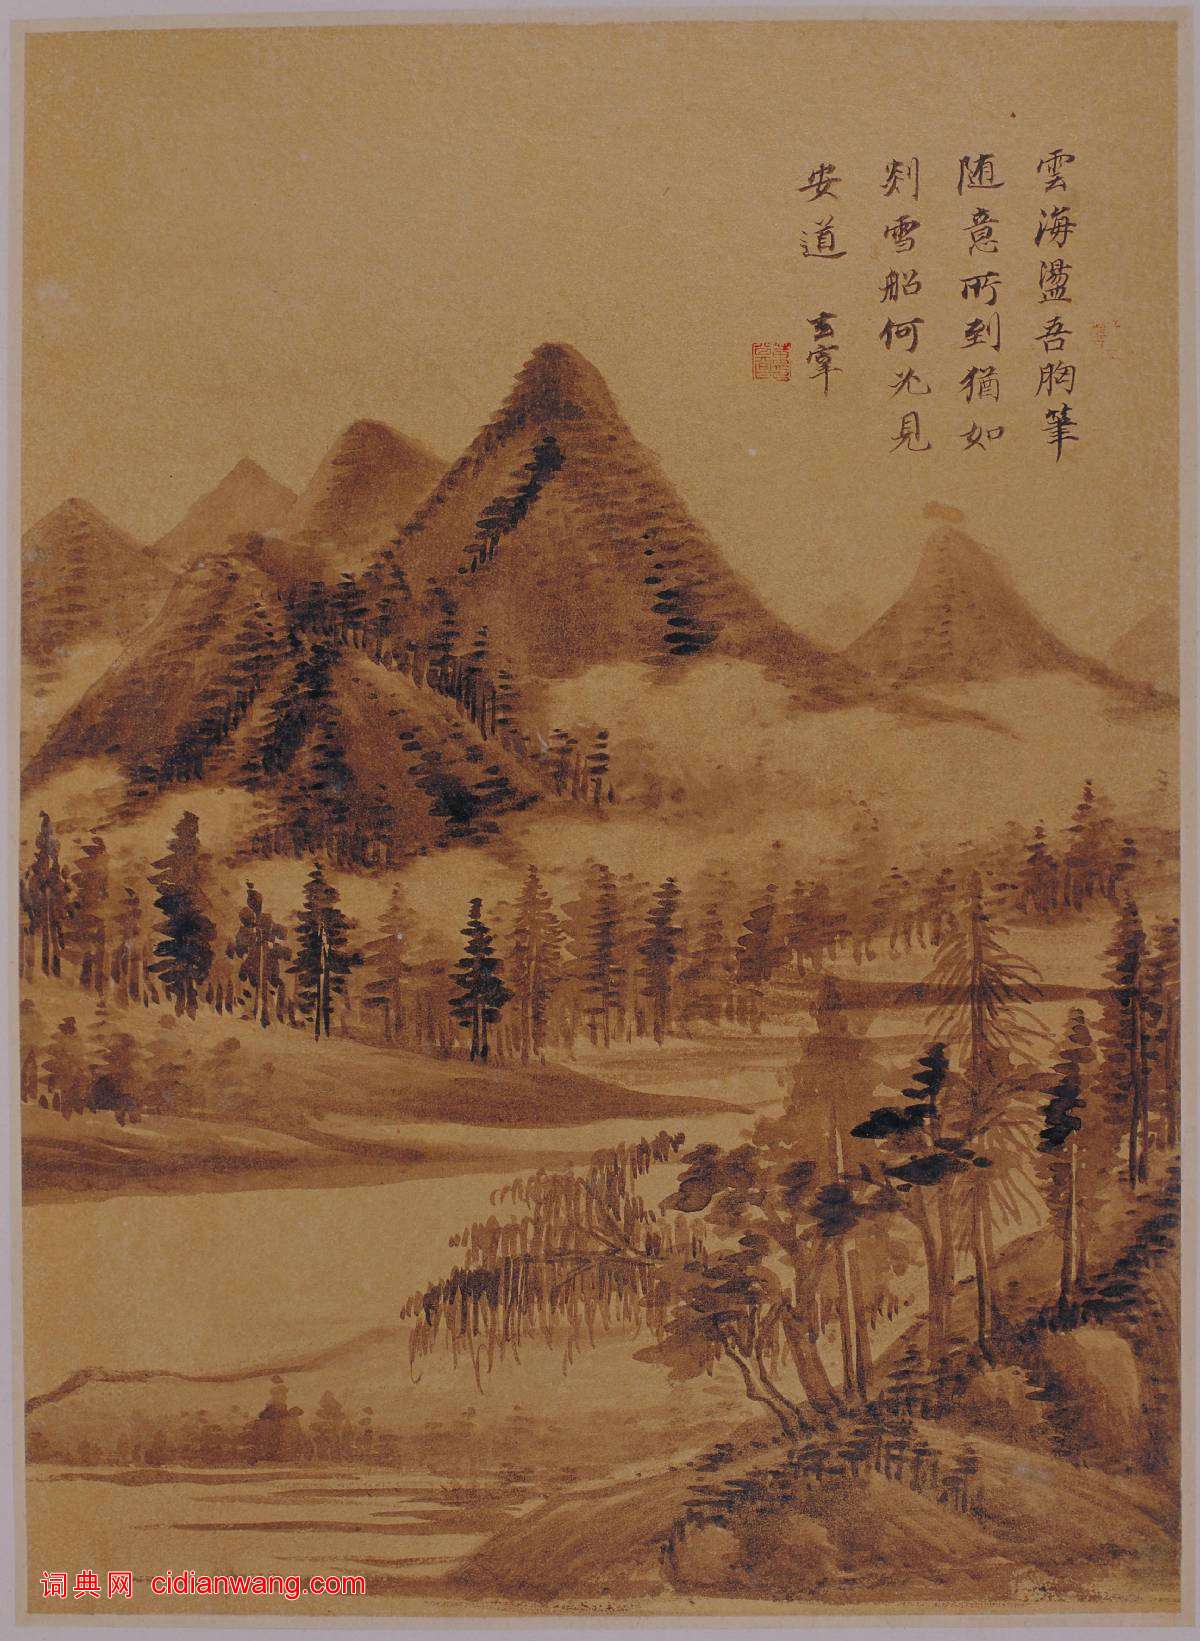 雲海盪吾胸筆
随意所到猶如
剡雪船何必見
安道 玄宰
词典网 cidianwang.com